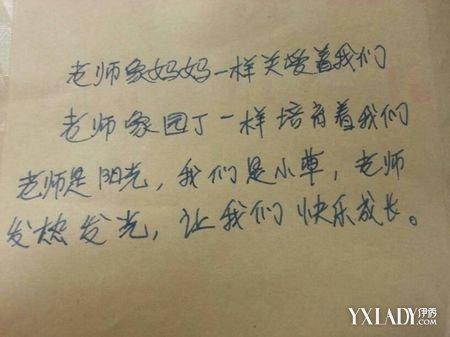 老师象妈妈一样关爱着我们
老师象园丁一样培育着我们
老师是阳光，我们是小草，老师
发热发光，让我们快乐成长。
YXLADY伊秀
.COM